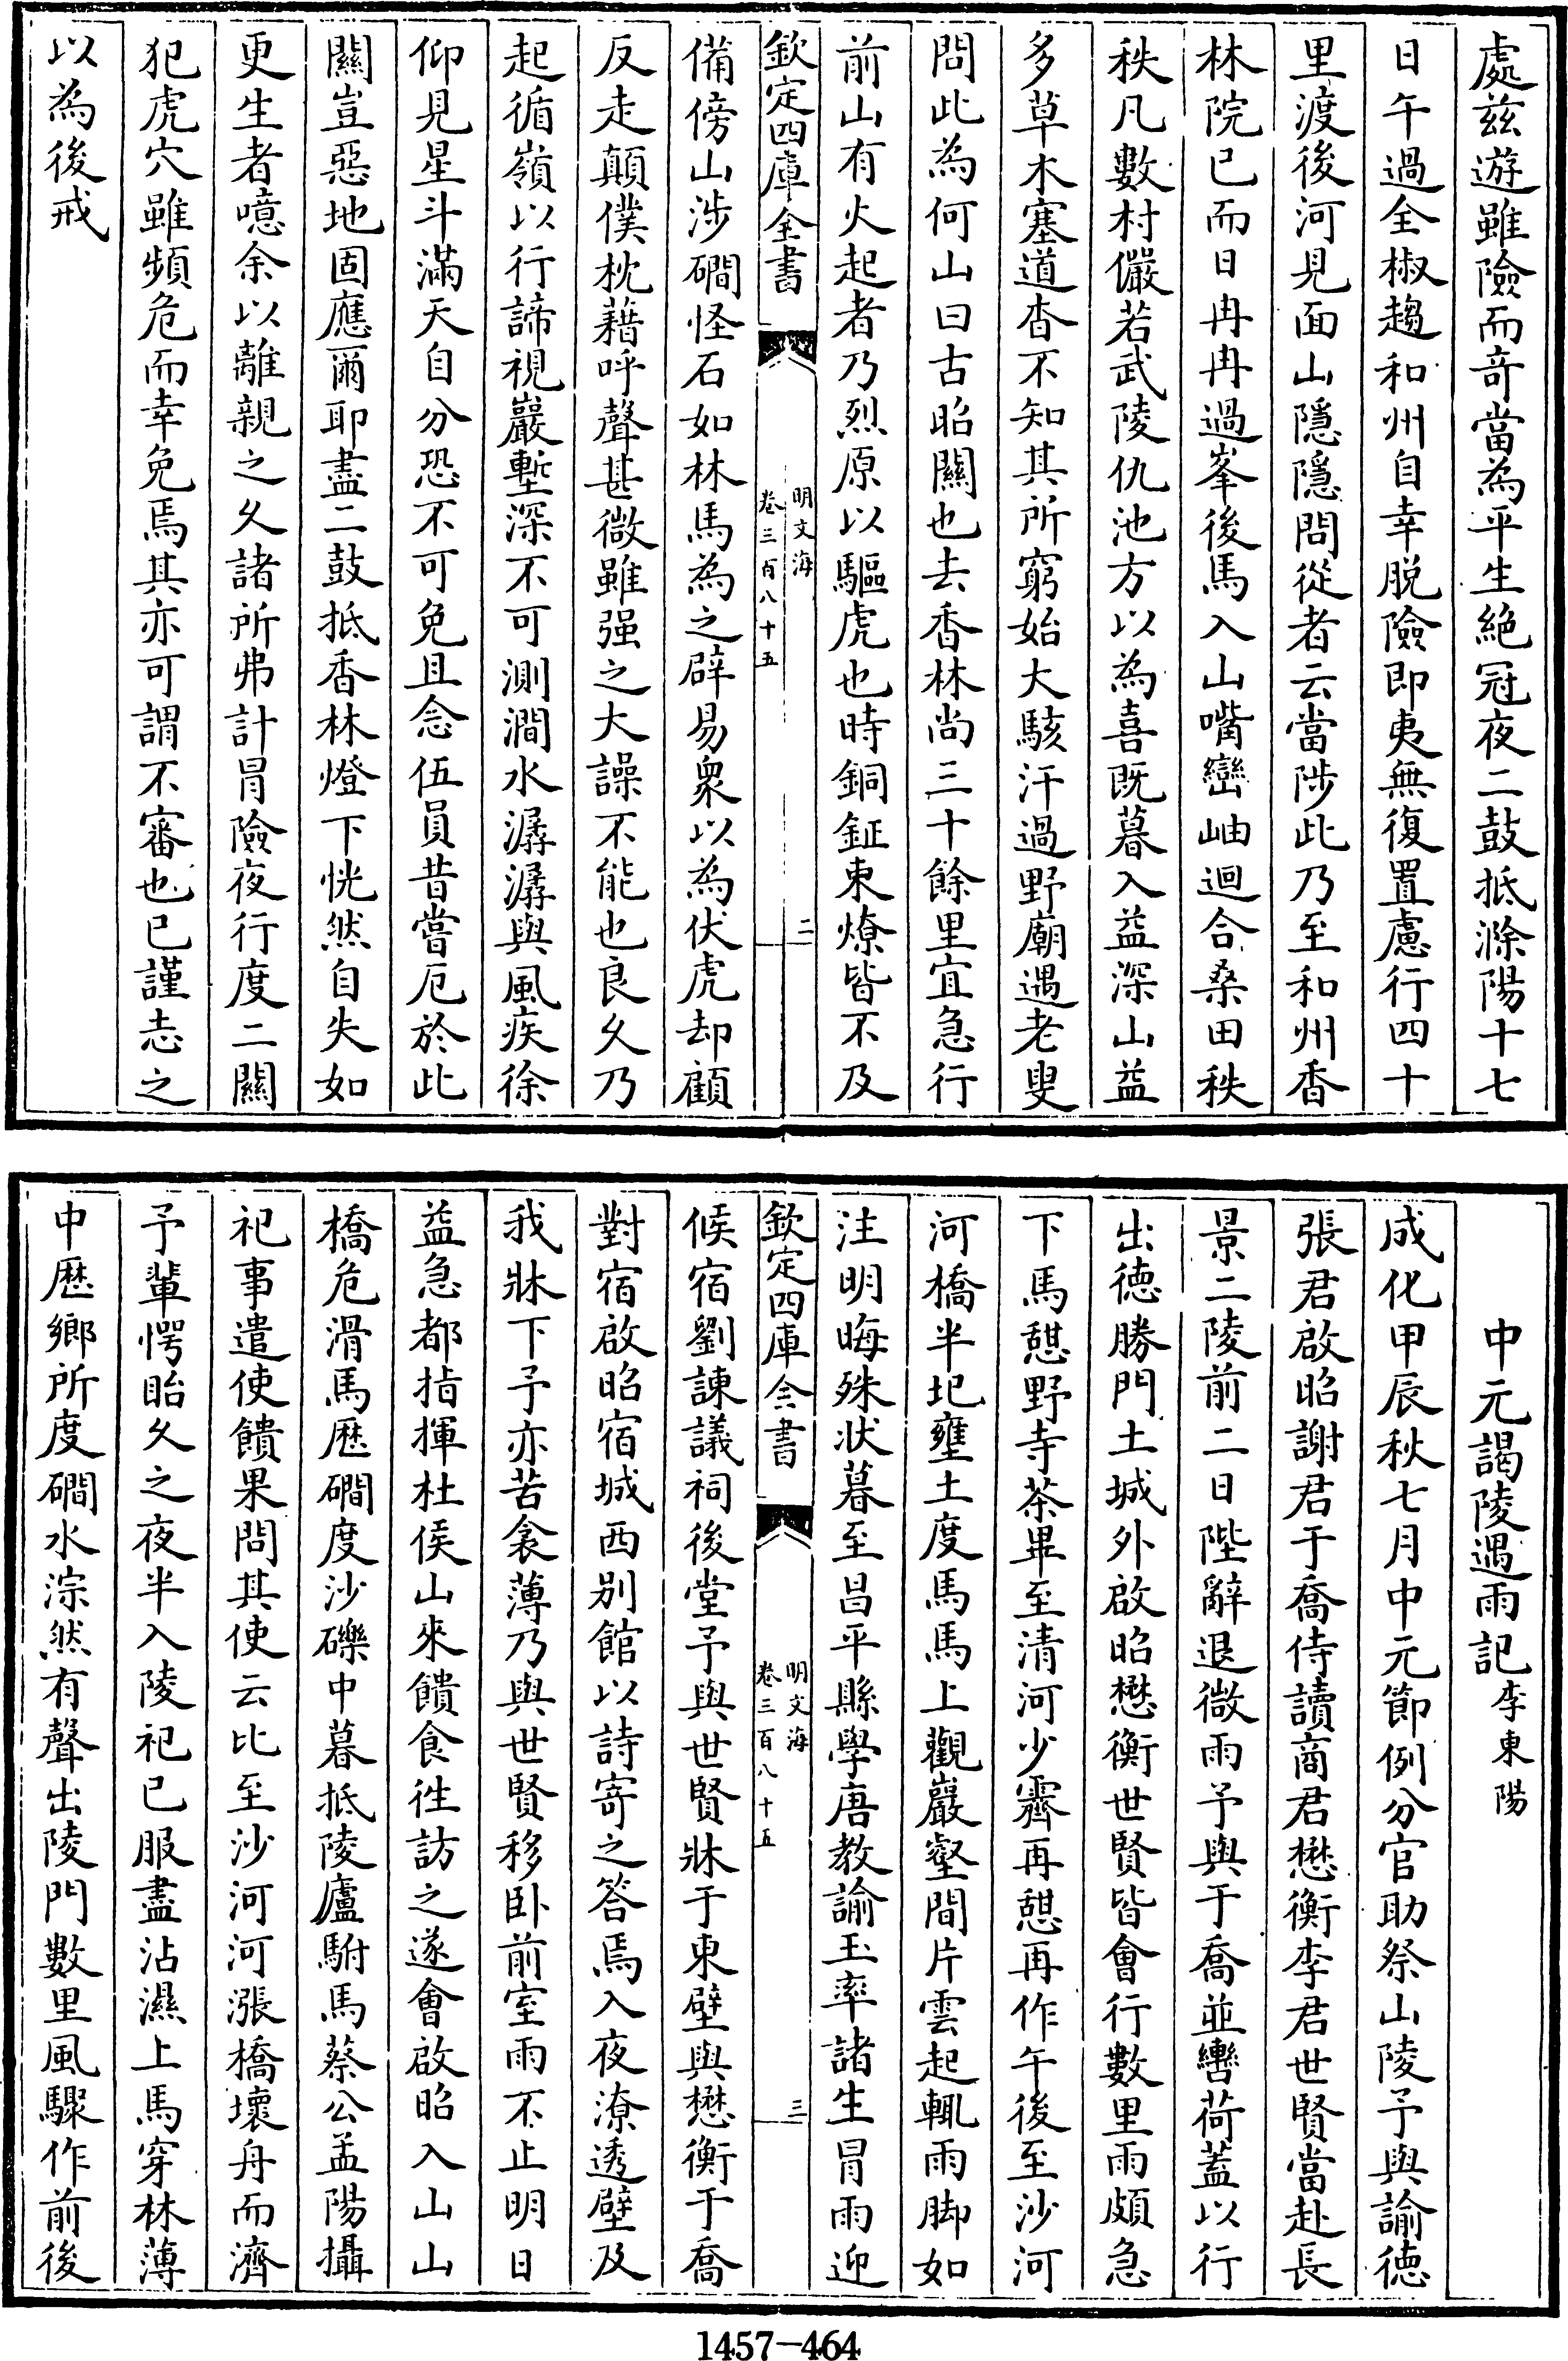 處兹遊雖險而竒當為平生絶冠夜二鼓抵滁陽十七
日午過全椒趨和州自幸脱險即夷無復置慮行四十
里渡後河見面山隠隠問從者云當陟此乃至和州香
林院已而日冉冉過峯後馬入山嘴巒岫迴合桑田秩
秩凡數村儼若武陵仇池方以為喜既暮入益深山益
多草木塞道杳不知其所窮始大駭汗過野廟遇老叟
問此為何山曰古昭闗也去香林尚三十餘里宜急行
前山有火起者乃烈原以驅虎也時銅鉦束燎皆不及
欽定四庫全書
明文海
卷三百八十五
二
備傍山涉磵怪石如林馬為之辟易衆以為伏虎却顧
反走顛僕枕藉呼聲甚微雖强之大譟不能也良久乃
起循嶺以行諦視巖塹深不可測澗水潺潺與風疾徐
仰見星斗滿天自分恐不可免且念伍員昔嘗厄於此
闗豈惡地固應爾耶盡二鼓抵香林燈下恍然自失如
更生者噫余以離親之久諸所弗計冒險夜行度二闗
犯虎穴雖頻危而幸免焉其亦可謂不審也已謹志之
以為後戒
中元謁陵遇雨記 李東陽
成化甲辰秋七月中元節例分官助祭山陵予與諭徳
張君啟昭謝君于喬侍讀商君懋衡李君世賢當赴長
景二陵前二日陛辭退微雨予與于喬並轡荷蓋以行
出徳勝門土城外啟昭懋衡世賢皆會行數里雨頗急
下馬憇野寺茶畢至清河少霽再憇再作午後至沙河
河橋半圯壅土度馬馬上觀巖壑間片雲起輒雨脚如
注明晦殊状暮至昌平縣學唐教諭玉率諸生冒雨迎
欽定四庫全書
明文海
卷三百八十五
三
候宿劉諌議祠後堂予與世賢牀于東壁與懋衡于喬
對宿啟昭宿城西别館以詩寄之答焉入夜潦透壁及
我牀下予亦苦衾薄乃與世賢移卧前室雨不止明日
益急都指揮杜侯山來饋食徃訪之遂會啟昭入山山
橋危滑馬歴磵度沙礫中暮抵陵廬駙馬蔡公孟陽攝
祀事遣使饋果問其使云比至沙河河漲橋壞舟而濟
予輩愕眙久之夜半入陵祀已服盡沾濕上馬穿林薄
中歴鄉所度磵水淙然有聲出陵門數里風驟作前後
1457-464